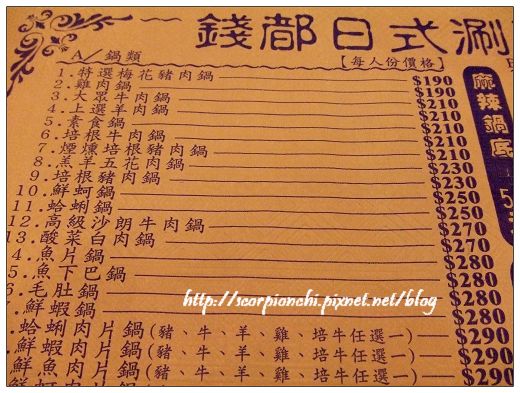 錢都日式涮
A／鍋類 【每人份價格】
1.特選梅花豬肉鍋 $190
2.雞肉鍋 $190
3.大眾牛肉鍋 $210
4.上選羊肉鍋 $210
5.素食鍋 $210
6.培根牛肉鍋 $210
7.煙燻培根豬肉鍋 $210
8.羔羊五花肉鍋 $230
9.培根豬肉鍋 $230
10.鮮蚵鍋 $250
11.蛤蜊鍋 $250
12.高級沙朗牛肉鍋 $270
13.酸菜白肉鍋 $270
4.魚片鍋 $280
5.魚下巴鍋 $280
6.毛肚鍋 $280
7.鮮蝦鍋 $280
.蛤蜊肉片鍋(豬、牛、羊、雞、培牛任選一) $290
.鮮蝦肉片鍋(豬、牛、羊、雞、培牛任選一) $290
鮮魚肉片鍋(豬、牛、羊、雞、培牛任選一) $290
麻辣鍋底
5
http://scorpionchi.pixnet.net/blog